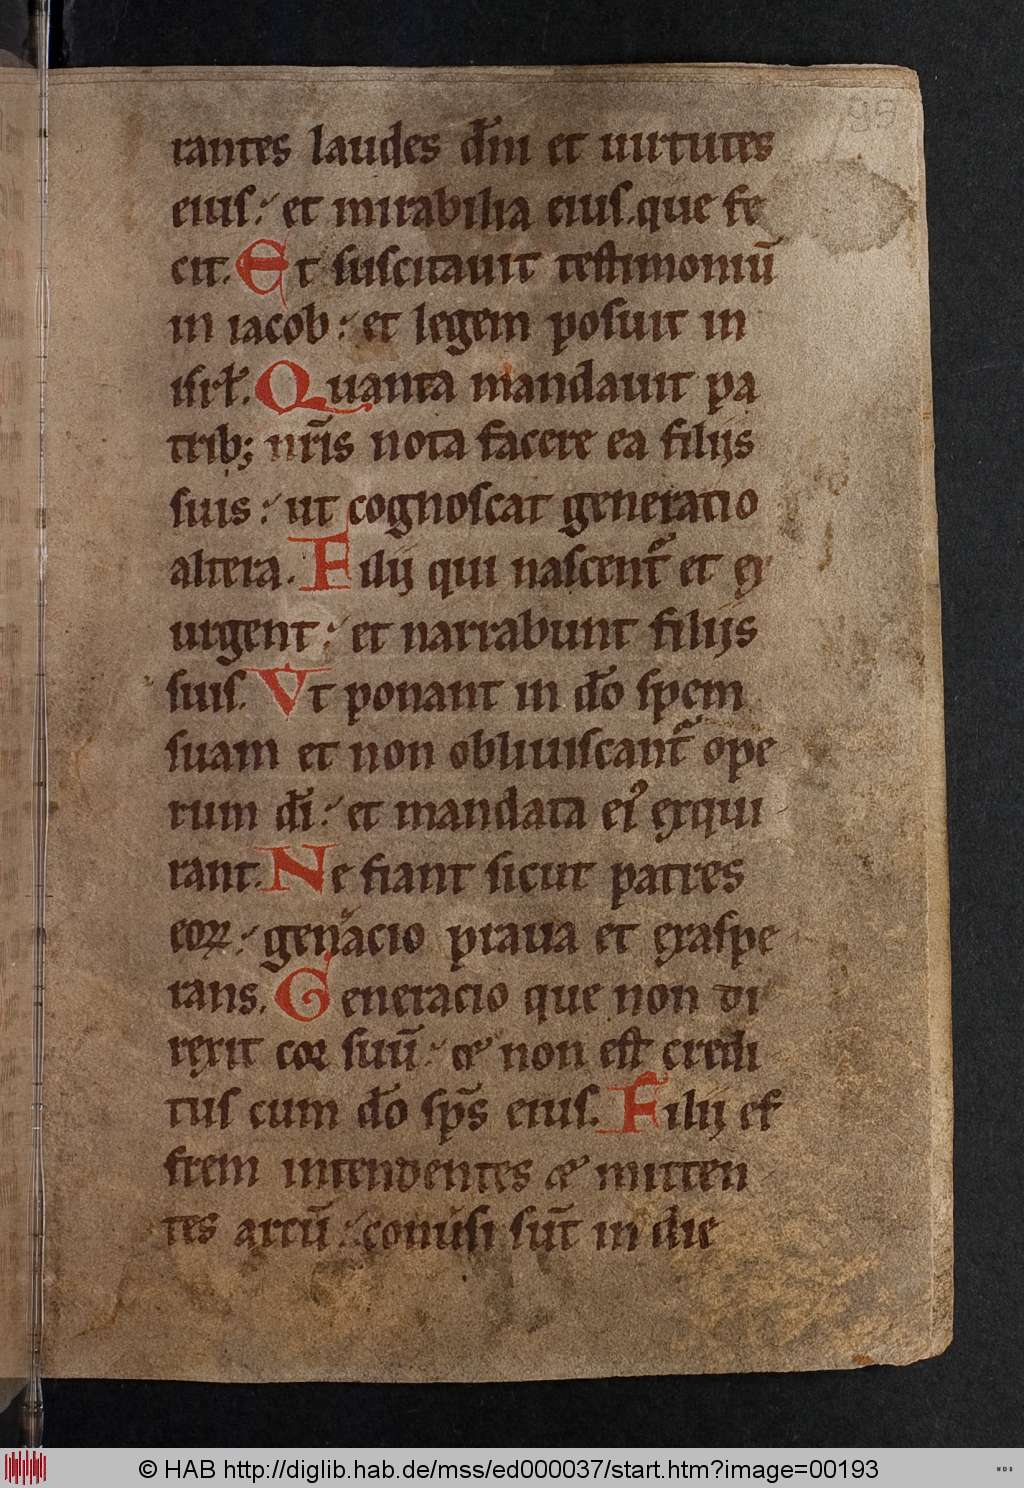 99
rantes laudes dn̄i et uirtutes
eius : et mirabilia eius . que fe
cit . Et suscitauit testimoniū
in iacob : et legem posuit in
isrł . Quanta mandauit pa
trib; nr̄is nota facere ea filijs
suis : ut cognoscat generatio
altera . Filij qui nascent᷑ et ex
urgent : et narrabunt filijs
suis . Vt ponant in dō spem
suam et non obliuiscant᷑ ope
rum dī : et mandata ei᷒ exqui
rant . Ne fiant sicut patres
eoꝝ : gen̄acio praua et exaspe
rans . Generacio que non di
rexit cor suū : et non est credi
tus cum dō sp̄s eius . Filij ef
frem intendentes et mitten
tes arcū : conu̾si sūt in die
© HAB http://diglib.hab.de/mss/ed000037/start.htm?image=00193